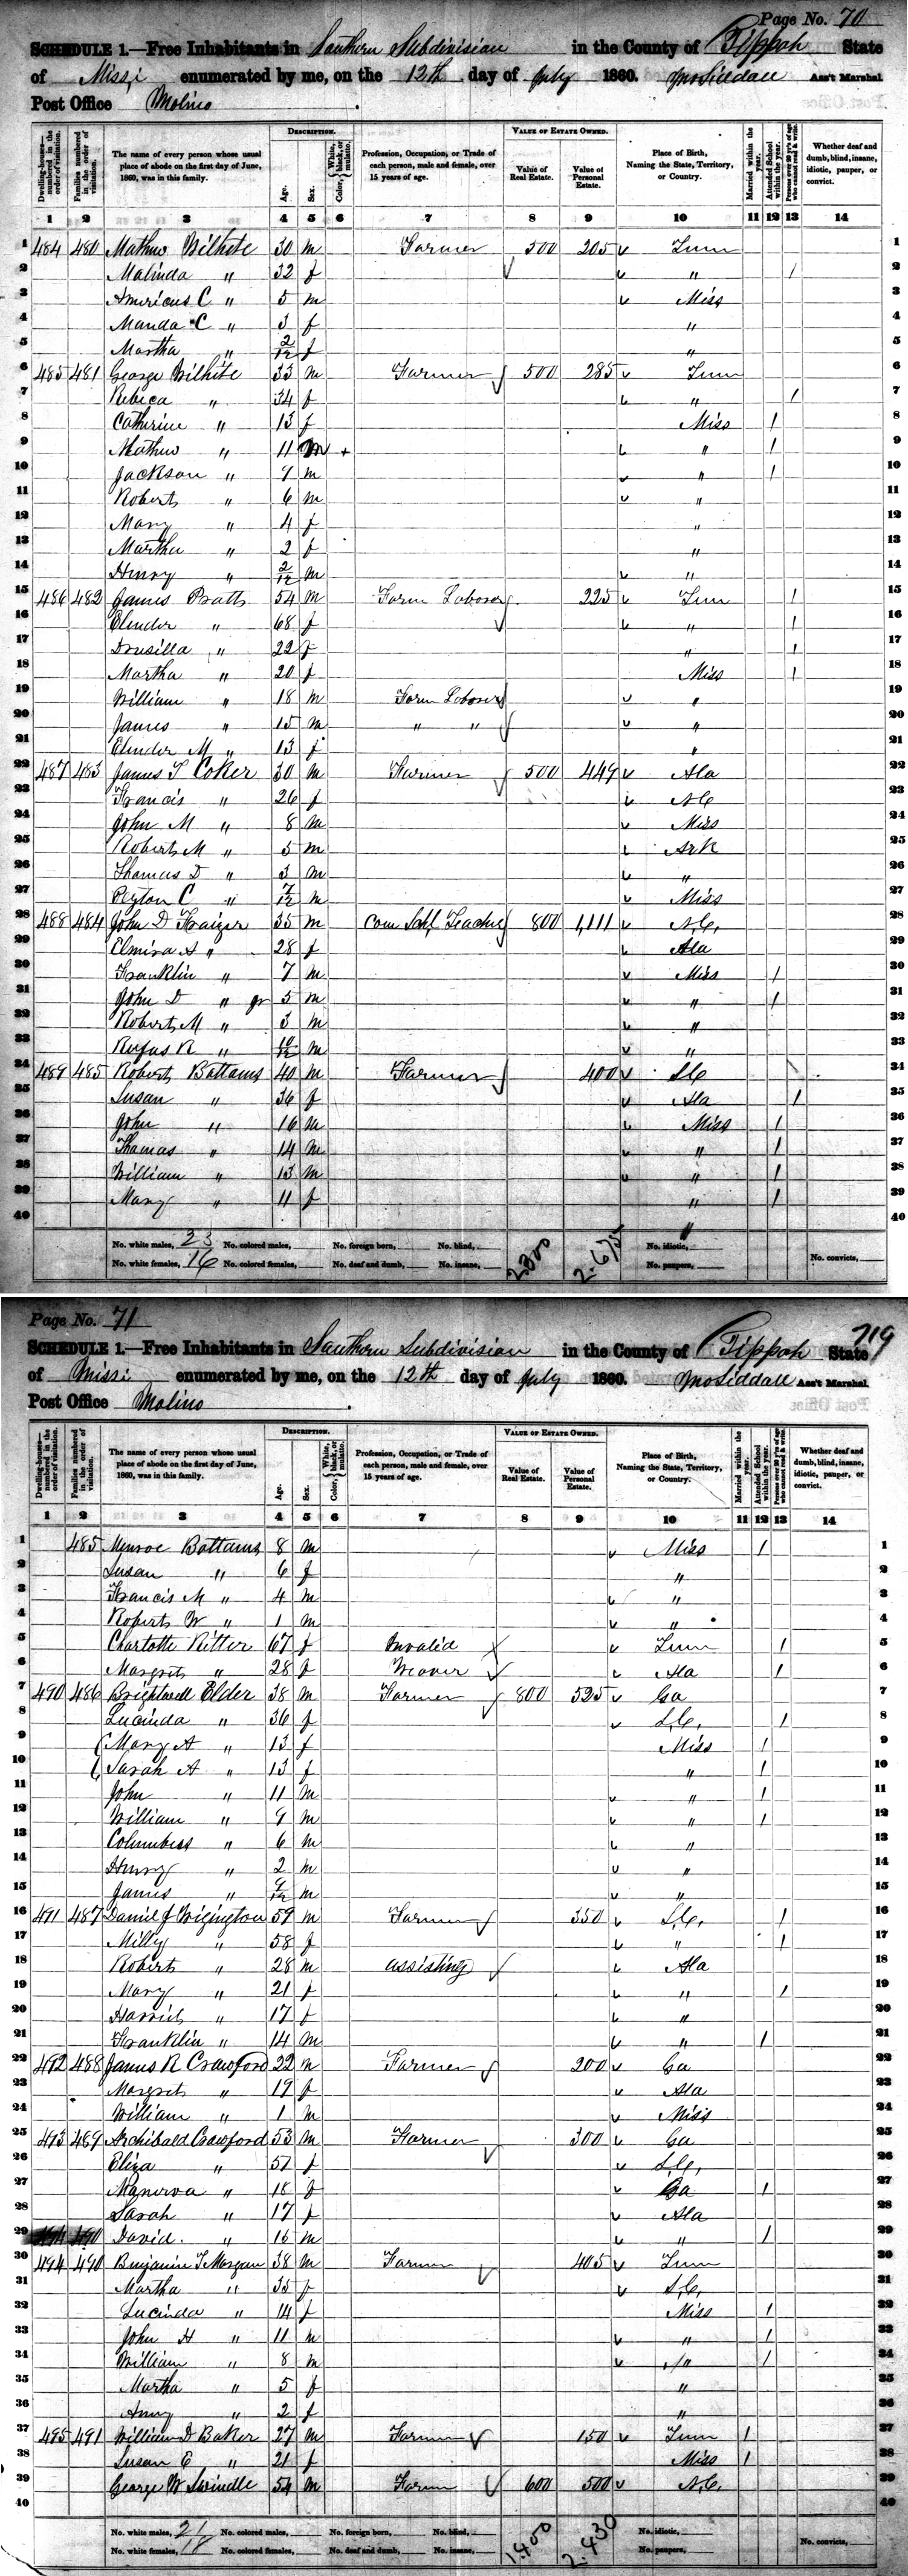 Page No. 70
SCHEDULE 1.—Free Inhabitants in Southern Subdivision in the County of Tippah State
of Missi enumerated by me, on the 12th day of July 1860. Ass't Marshal.
Post Office Molino
Dwelling-houses—numbered in the order of visitation. Families numbered in the order of visitation. The name of every person whose usual place of abode on the first day of June, 1860, was in this family. DESCRIPTION. Age. Sex. Color, White, black, or mulatto. Profession, Occupation, or Trade of each person, male and female, over 15 years of age. VALUE OF ESTATE OWNED. Value of Real Estate. Value of Personal Estate. Place of Birth, Naming the State, Territory, or Country. Married within the year. Attended School within the year. Persons over 20 y'rs of age who cannot read & write. Whether deaf and dumb, blind, insane, idiotic, pauper, or convict.
1 2 3 4 5 6 7 8 9 10 11 12 13 14
1 484 480 Mathew Wilhite 30 m Farmer 500 205 Tenn 1
2 Malinda " 32 f " / 2
3 Americus C " 5 m Miss 3
4 Manda C " 3 f " 4
5 Martha " 2/12 f " 5
6 485 481 George Wilhite 33 m Farmer 500 285 Tenn 6
7 Rebica " 34 f " / 7
8 Catherine " 13 f Miss / 8
9 Mathew " 11 m + " / 9
10 Jackson " 9 m " / 10
11 Robert " 6 m " 11
12 Mary " 4 f " 12
13 Martha " 2 f " 13
14 Henry " 2/12 m " 14
15 486 482 James Pratt 54 m Farm Laborer 225 Tenn / 15
16 Elender " 68 f " / 16
17 Drusilla " 22 f " / 17
18 Martha " 20 f Miss / 18
19 William " 18 m Farm Laborer " 19
20 James " 15 m " " " 20
21 Elender M " 13 f " 21
22 487 483 James T Coker 30 m Farmer 500 449 Ala 22
23 Francis " 26 f N C 23
24 John M " 8 m Miss 24
25 Robert M " 5 m Ark 25
26 Thomas D " 3 m " 26
27 Peyton C " 7/12 m Miss 27
28 488 484 John D Fraizer 35 m Com Schl Teacher 800 1,111 N.C. 28
29 Elmira A " 28 f Ala 29
30 Franklin " 7 m Miss / 30
31 John D " jr 5 m " / 31
32 Robert M " 3 m " 32
33 Rufus R " 10/12 m " 33
34 489 485 Robert Battams 40 m Farmer 400 S C 34
35 Susan " 36 f Ala / 35
36 John " 16 m Miss / 36
37 Thomas " 14 m " / 37
38 William " 13 m " / 38
39 Mary " 11 f " / 39
40 " 40
No. white males, 23 No. colored males, No. foreign born, No. blind, 2,300 2,675 No. idiotic,
No. white females, 16 No. colored females, No. deaf and dumb, No. insane, No. paupers, No. convicts,
Page No. 71
719
SCHEDULE 1.—Free Inhabitants in Southern Subdivision in the County of Tippah State
of Missi enumerated by me, on the 12th day of July 1860. Ass't Marshal.
Post Office Molino
Dwelling-houses—numbered in the order of visitation. Families numbered in the order of visitation. The name of every person whose usual place of abode on the first day of June, 1860, was in this family. DESCRIPTION. Age. Sex. Color, White, black, or mulatto. Profession, Occupation, or Trade of each person, male and female, over 15 years of age. VALUE OF ESTATE OWNED. Value of Real Estate. Value of Personal Estate. Place of Birth, Naming the State, Territory, or Country. Married within the year. Attended School within the year. Persons over 20 y'rs of age who cannot read & write. Whether deaf and dumb, blind, insane, idiotic, pauper, or convict.
1 2 3 4 5 6 7 8 9 10 11 12 13 14
1 485 Munroe Battams 8 m Miss / 1
2 Susan " 6 f " 2
3 Francis M " 4 m " 3
4 Robert W " 1 m " 4
5 Charlotte Ritter 67 f Invalid Tenn / 5
6 Margret " 28 f Weaver Ala / 6
7 490 486 Brightwell Elder 38 m Farmer 800 525 Ga 7
8 Lucinda " 36 f S.C. / 8
9 Mary A " 13 f Miss / 9
10 Sarah A " 13 f " / 10
11 John " 11 m " / 11
12 William " 9 m " / 12
13 Columbus " 6 m " 13
14 Henry " 2 m " 14
15 James " 9/12 m " 15
16 491 487 Daniel J Wigington 59 m Farmer 350 S.C. / 16
17 Milly " 58 f " / 17
18 Robert " 28 m assisting Ala 18
19 Mary " 21 f " / 19
20 Harriet " 17 f " 20
21 Franklin " 14 m " / 21
22 492 488 James R Crawford 22 m Farmer 200 Ga 22
23 Margret " 19 f Ala 23
24 William " 1 m Miss 24
25 493 489 Archibald Crawford 53 m Farmer 300 Ga 25
26 Eliza " 51 f S.C. 26
27 Manerva " 18 f Ga / 27
28 Sarah " 17 f Ala 28
29 David " 15 m " / 29
30 494 490 Benjamin T Morgan 38 m Farmer 405 Tenn 30
31 Martha " 35 f S.C. 31
32 Lucinda " 14 f Miss / 32
33 John H " 11 m " / 33
34 William " 8 m " / 34
35 Martha " 5 f " 35
36 Amy " 2 f " 36
37 495 491 William D Baker 27 m Farmer 150 Tenn / 37
38 Susan E " 21 f Miss / 38
39 George W Swindle 54 m Farm 600 500 N.C. 39
40 40
No. white males, 21 No. colored males, No. foreign born, No. blind, 1,400 2,430 No. idiotic,
No. white females, 18 No. colored females, No. deaf and dumb, No. insane, No. paupers, No. convicts,